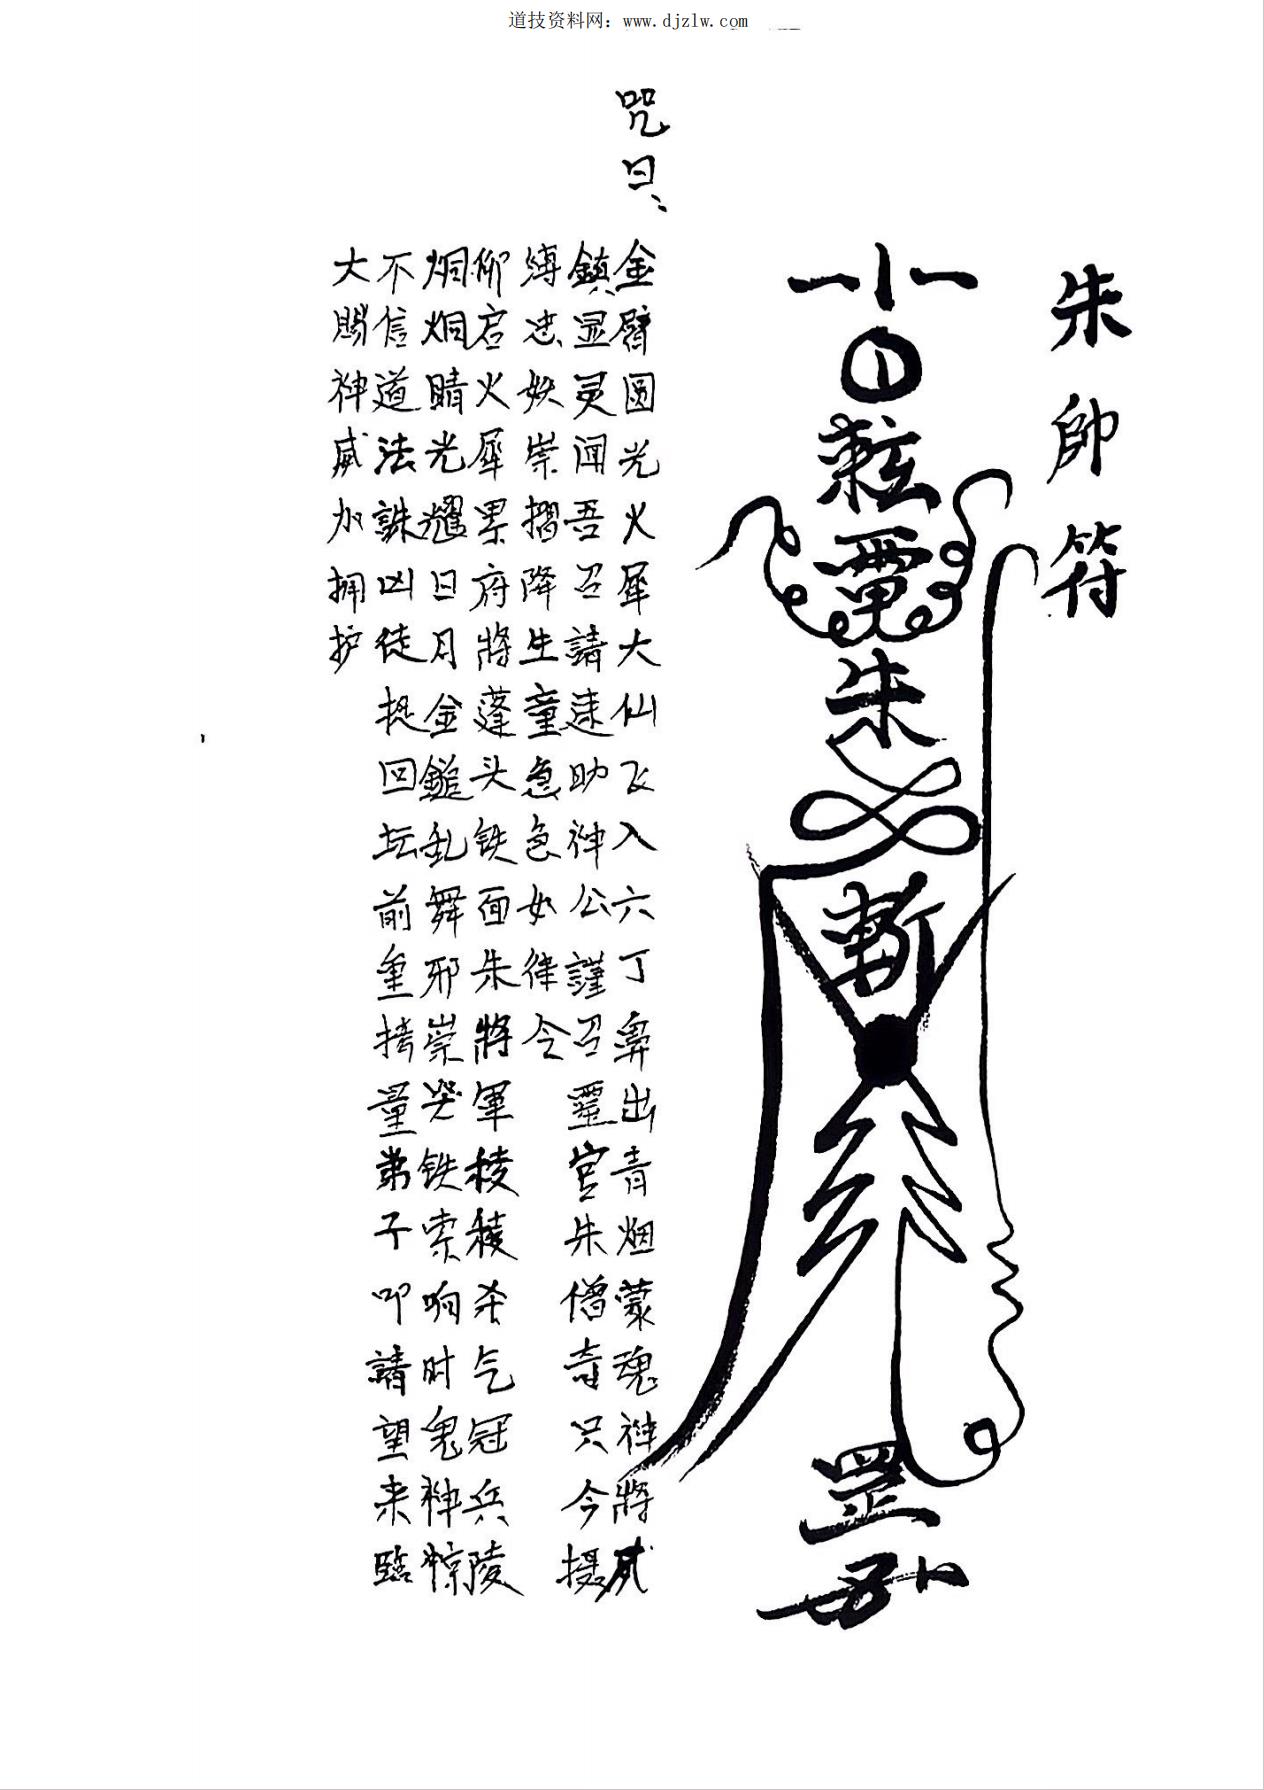 道技资料网：www.djzlw.com
朱帥符
朱
斬
罡
咒曰：
金臂圆光火犀大仙飞入六丁鼻出青烟蒙魂神將威
鎮显灵闻吾召請速助神公謹召靈官朱僧奇只今摄
縛忠妖崇摺降生童急急如律令
仰启火犀累府將蓬头铁面朱將軍稜稜杀气冠兵陵
烔烔睛光耀日月金鎚乱舞邪崇哭铁索响时鬼神惊
不信道法誅凶徒捉回坛前重拷量弟子叩請望来臨
大賜神威加拥护